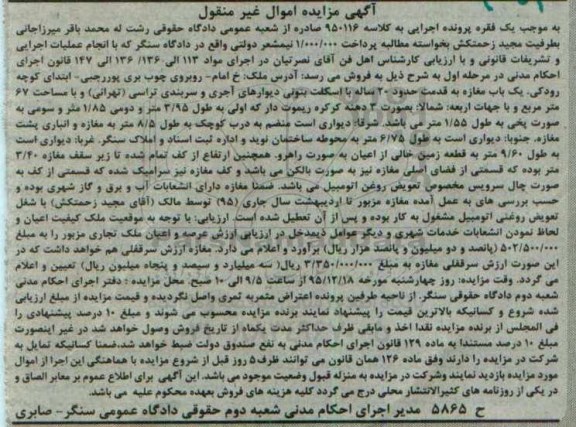 آگهی مزایده اموال غیر منقول
به موجب یک فقره پرونده اجرایی به کلاسه ۹۵۰۱۱۶ صادره از شعبه عمومی دادگاه حقوقی رشت له محمد باقر میرزاجانی
بطرفیت مجید زحمتکش بخواسته مطالبه پرداخت ۱/۰۰۰/۰۰۰ نیمشعر دولتی واقع در دادگاه سنگر که با انجام عملیات اجرایی
و تشریفات قانونی و با ارزیابی کارشناس اهل فن آقای نصرتیان در اجرای مواد ۱۱۳ الی۱۳۶۰/ ۱۳۶ الی ۱۴۷ قانون اجرای
احکام مدنی در مرحله اول به شرح ذیل به فروش می رسد: آدرس ملک: خ امام- روبروی چوب بری پوررجبی- ابتدای کوچه
رودکی. یک باب مغازه به قدمت حدود ۲۰ ساله با اسکلت بتونی دیوارهای آجری و سربندی تراسی (تهرانی) و با مساحت ۶۷
متر مربع و با جهات اربعه: شمالا: بصورت ۳ دهنه کرکره ریموت دار که اولی به طول ۳/۹۵ متر و دومی ۱/۸۵ متر و سومی به
صورت پخی به طول ۱/۵۵ متر می باشد. شرقا: دیواری است منضم به درب کوچک به طول ۸/۵ متر به مغازه و انباری پشت
مغازه. جنوبا: دیواری است به طول ۶/۷۵ متر به محوطه ساختمان نوید و اداره ثبت اسناد و املاک سنگر. غربا: دیواری است
به طول ۹/۶۰ متر به قطعه زمین خالی از اعیان به صورت راهرو. همچنین ارتفاع از کف تمام شده تا زیر سقف مغازه ۳/۴۰
متر بوده که قسمتی از فضای اصلی مغازه نیز به صورت بالکن می باشد و کف مغازه نیز سرامیک شده که قسمتی از کف به
صورت چال سرویس مخصوص تعویض روغن اتومبیل می باشد. ضمنا مغازه دارای انشعابات آب و برق و گاز شهری بوده و
حسب بررسی های به عمل آمده مغازه مزبور تا اردیبهشت سال جاری (۹۵) توسط مالک (آقای مجید زحمتکش) با شغل
تعویض روغنی اتومبیل مشغول به کار بوده و پس از آن تعطیل شده است. ارزیابی: با توجه به موقعیت ملک کیفیت اعیان و
لحاظ نمودن انشعابات خدمات شهری و دیگر عوامل ذیمدخل در ارزیابی ارزش عرصه و اعیان ملک تجاری مزبور را به مبلغ
۵۰۲/۵۰۰/۰۰۰ (پانصد و دو میلیون و پانصد هزار ریال) برآورده و اعلام می دارد. مغازه ارزش سرقفلی هم خواهد داشت که در
این صورت ارزش سرقفلی مغازه به مبلغ ۳/۳۵۰/۰۰۰/۰۰۰ ریال( سه میلیارد و سیصد و پنجاه میلیون ریال) تعیین و اعلام
می گردد. وقت مزایده: روز چهارشنبه مورخه ۹۵/۱۲/۱۸ از ساعت ۹/۵ الی ۱۰ صبح. محل مزایده : دفتر اجرای احکام مدنی
شعبه دوم دادگاه حقوقی سنگر. از ناحیه طرفین پرونده اعتراض مثمرثه ثمری واصل نگردیده و قیمت مزایده از مبلغ ارزیابی
شده شروع و کسانیکه بالاترین قیمت را پیشنهاد نمایند برنده مزایده محسوب می شوند و مبلغ ۱۰ درصد پیشنهادی را
فی المجلس از برنده مزایده نقدا اخذ و مابقی ظرف حداکثر مدت یکماه از تاریخ فروش وصول خواهد شد در غیر اینصورت
مبلغ ۱۰ درصد مستندا به ماده ۱۲۹ قانون اجرای احکام مدنی به نفع صندوق دولت ضبط خواهد شد.ضمنا کسانیکه تمایل به
شرکت در مزایده را دارند وفق ماده ۱۲۶ همان قانون می توانند ظرف ۵ روز قبل از شروع مزایده با هماهنگی این اجرا از اموال
مورد مزایده بازدید نمایند وشرکت در مزایده به منزله قبول وضعیت موجود می باشد. این آگهی برای اطلاع عموم بر معابر الصاق و
در یکی از روزنامه های کثیرالانتشار محلی درج می گردد کلیه هزینه های فروش بعهده محکوم علیه می باشد.
ح ۵۸۶۵ مدیر اجرای احکام مدنی شعبه دوم حقوقی دادگاه عمومی سنگر- صابری